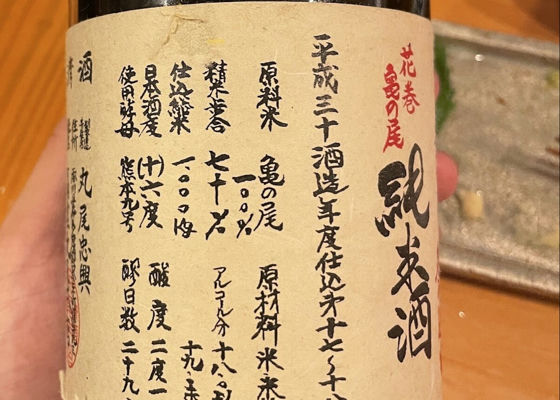 花巻
亀の尾
純米酒
平成三十酒造年度仕込み第十七～十八
原料米 亀の尾 一〇〇％
原材料 米・米
精米歩合 七十％
アルコール分 十八・
仕込総米 一〇〇〇kg
十九・五
日本酒度 (+)十六度
酸度 二度一
使用酵母 熊本九号
醪日数 二十九
清酒
丸尾忠興